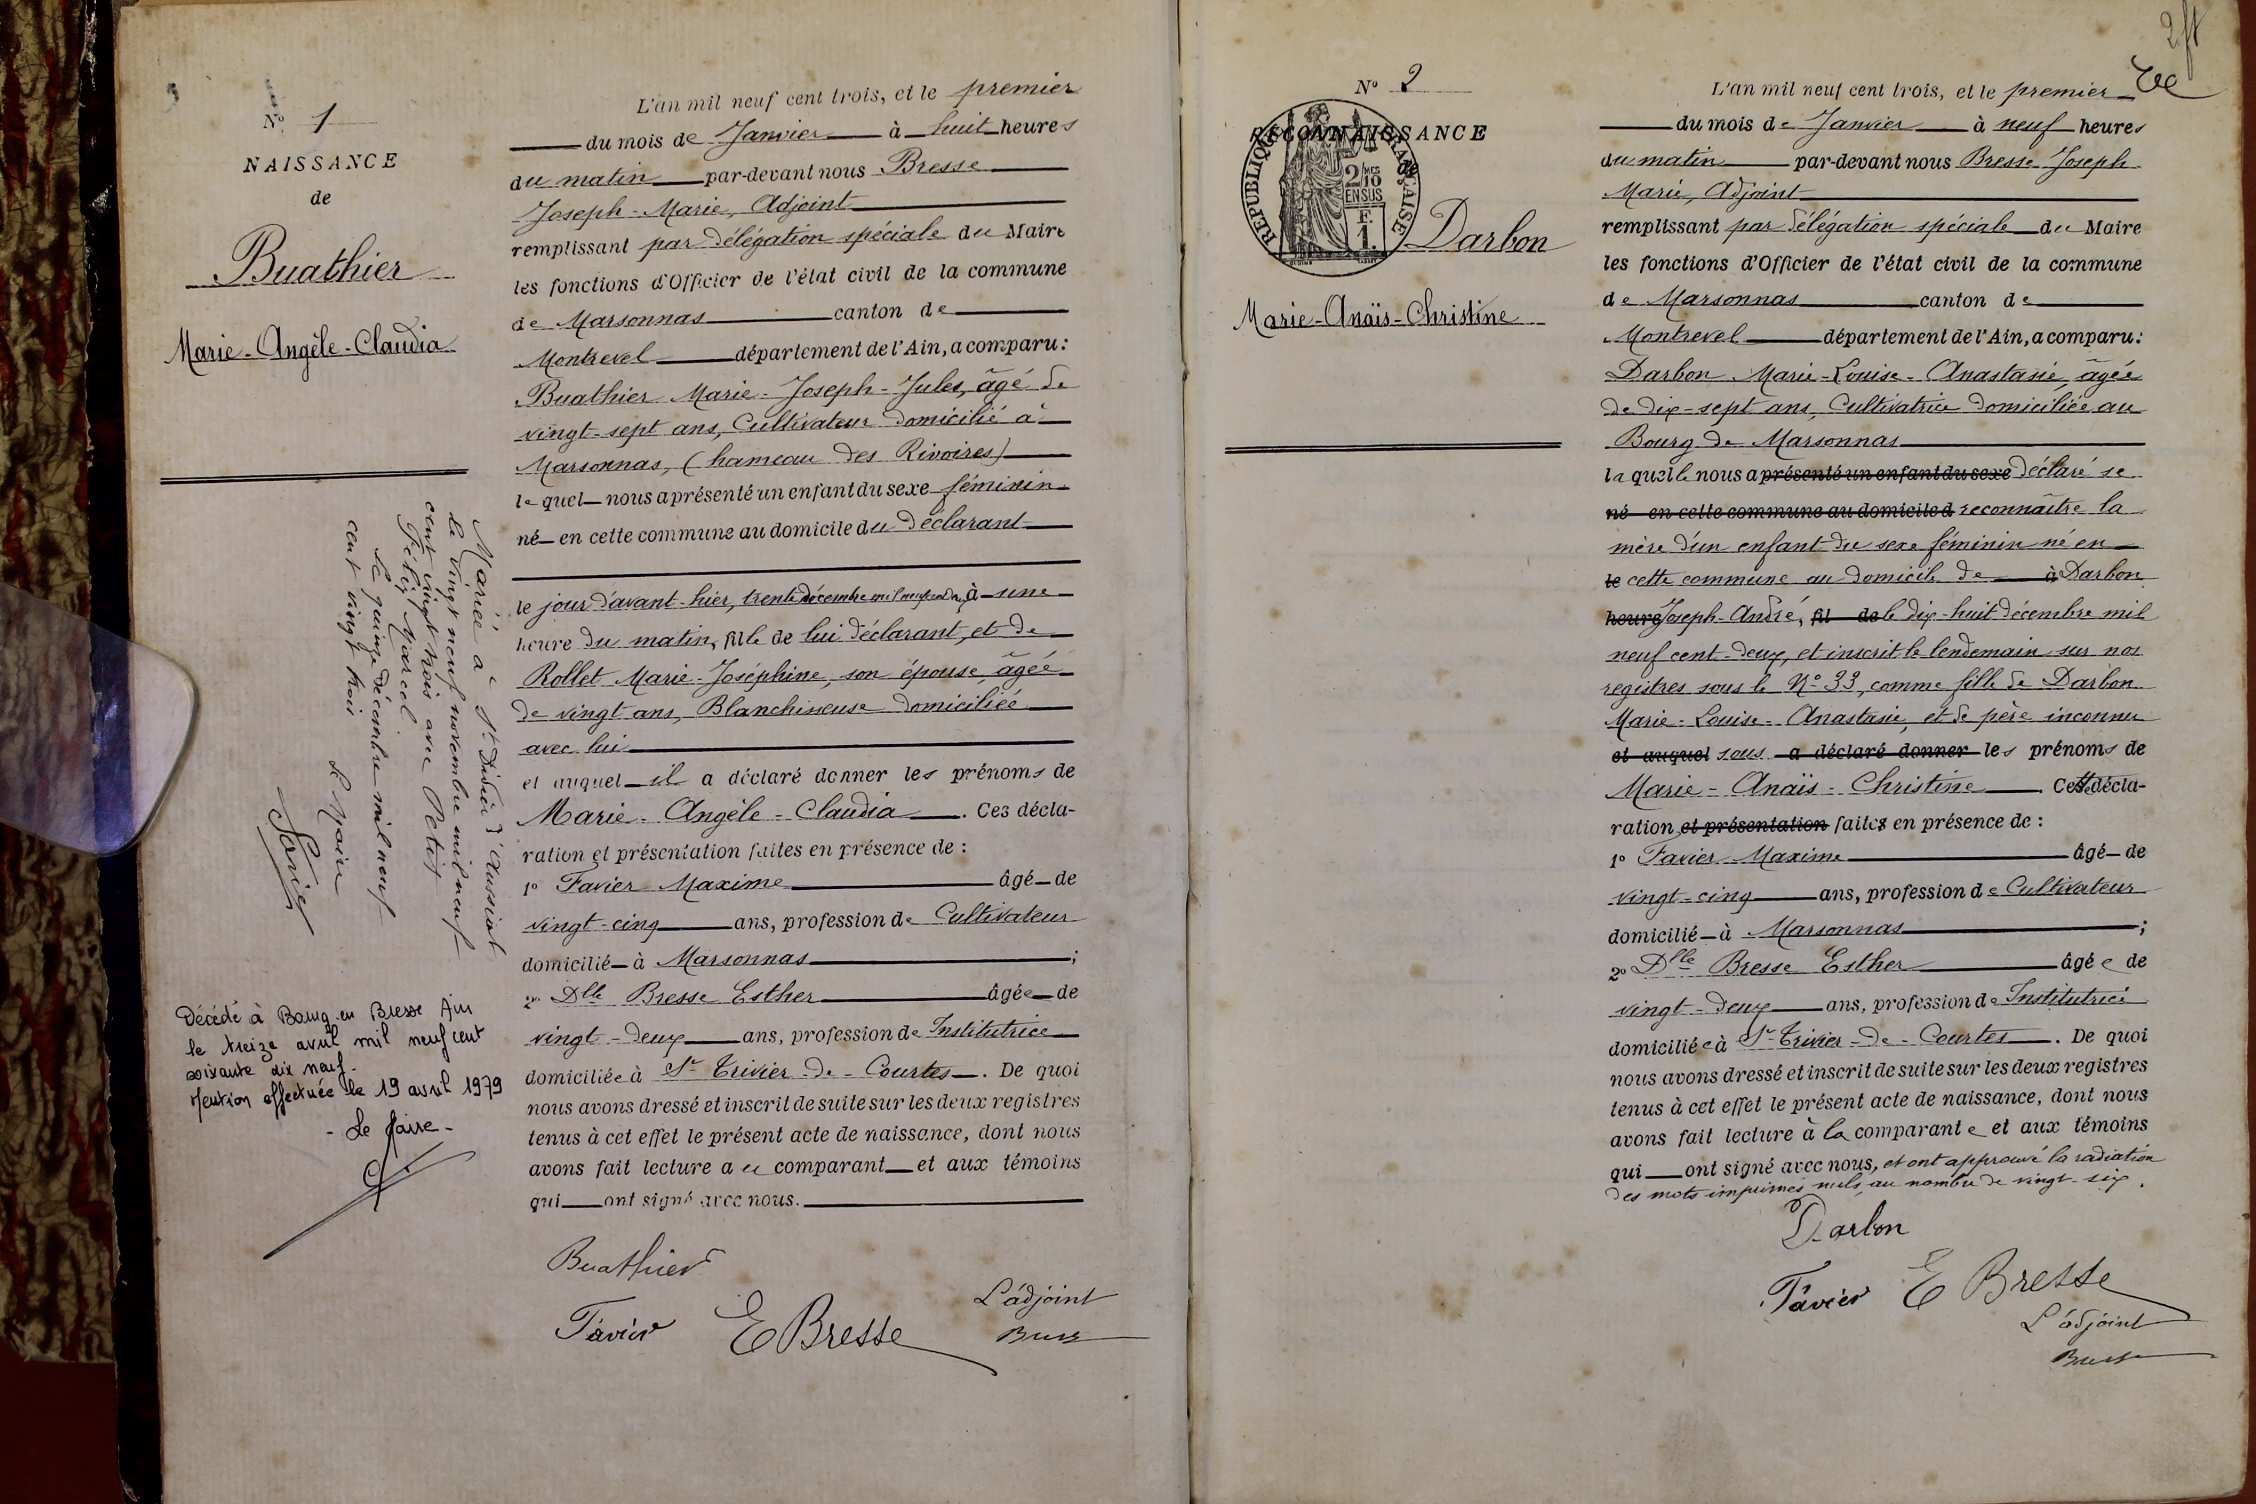 Nº 1
NAISSANCE
de
Buathier
Marie-Angèle-Claudia
Mariée à St Didier d'Aussiat
le vingt neuf novembre mil neuf
cent vingt trois avec Petit
Félix Marcel
le quinze décembre mil neuf
cent vingt trois
Le Maire
Décédé à Bourg en Bresse Ain
le treize avril mil neuf cent
soixante dix neuf-
Mention effectuée le 19 avril 1979
- Le Maire -
L'an mil neuf cent trois, et le premier
du mois de Janvier à huit heures
du matin par-devant nous Bresse
Joseph-Marie, Adjoint
remplissant par délégation spéciale du Maire
les fonctions d'Officier de l'état civil de la commune
de Marsonnas canton de
Montrevel département de l'Ain, a comparu:
Buathier Marie-Joseph-Jules, âgé de
vingt-sept ans, Cultivateur domicilié à
Marsonnas, (hameau des Rivoires)
lequel nous a présenté un enfant du sexe féminin
né en cette commune au domicile du déclarant
le jour d'avant-hier, trente décembre mil neuf cent deux, à une
heure du matin, fille de lui déclarant, et de
Rollet Marie-Joséphine, son épouse, âgée
de vingt ans, Blanchisseuse domiciliée
avec lui
et auquel il a déclaré donner les prénoms de
Marie-Angèle-Claudia. Ces décla-
ration et présentation faites en présence de :
1º Favier Maxime âgé de
vingt-cinq ans, profession de Cultivateur
domicilié à Marsonnas ;
2º Dlle Bresse Esther âgée de
vingt-deux ans, profession de Institutrice
domiciliée à St Trivier-de-Courtes. De quoi
nous avons dressé et inscrit de suite sur les deux registres
tenus à cet effet le présent acte de naissance, dont nous
avons fait lecture au comparant et aux témoins
qui ont signé avec nous.
Buathier
Favier E Bresse L'adjoint
Bresse
2
Nº 2
RECONNAISSANCE
de
RÉPUBLIQUE FRANÇAISE
2/10MES
EN SUS
F.
1.
Darbon
Marie-Anaïs-Christine
L'an mil neuf cent trois, et le premier
du mois de Janvier à neuf heures
du matin par-devant nous Bresse Joseph
Marie, Adjoint
remplissant par délégation spéciale du Maire
les fonctions d'Officier de l'état civil de la commune
de Marsonnas canton de
Montrevel département de l'Ain, a comparu:
Darbon Marie-Louise-Anastasie, âgée
de dix-sept ans, Cultivatrice domiciliée au
Bourg de Marsonnas
laquelle nous a présenté un enfant du sexe déclaré se
né en cette commune au domicile d reconnaître la
mère d'un enfant du sexe féminin né en
le cette commune au domicile de à Darbon
heure Joseph-André, fil de le dix-huit décembre mil
neuf cent-deux, et inscrit le lendemain sur nos
registres sous le Nº 33, comme fille de Darbon
Marie-Louise-Anastasie, et de père inconnu
et auquel sous a déclaré donner les prénoms de
Marie-Anaïs-Christine. Cette décla-
ration et présentation faites en présence de :
1º Favier Maxime âgé de
vingt-cinq ans, profession de Cultivateur
domicilié à Marsonnas ;
2º Dlle Bresse Esther âgée de
vingt-deux ans, profession de Institutrice
domiciliée à St Trivier-de-Courtes. De quoi
nous avons dressé et inscrit de suite sur les deux registres
tenus à cet effet le présent acte de naissance, dont nous
avons fait lecture à la comparante et aux témoins
qui ont signé avec nous, et ont approuvé la radiation
des mots imprimés nuls, au nombre de vingt-six.
Darbon
Favier E Bresse
L'adjoint
Bresse